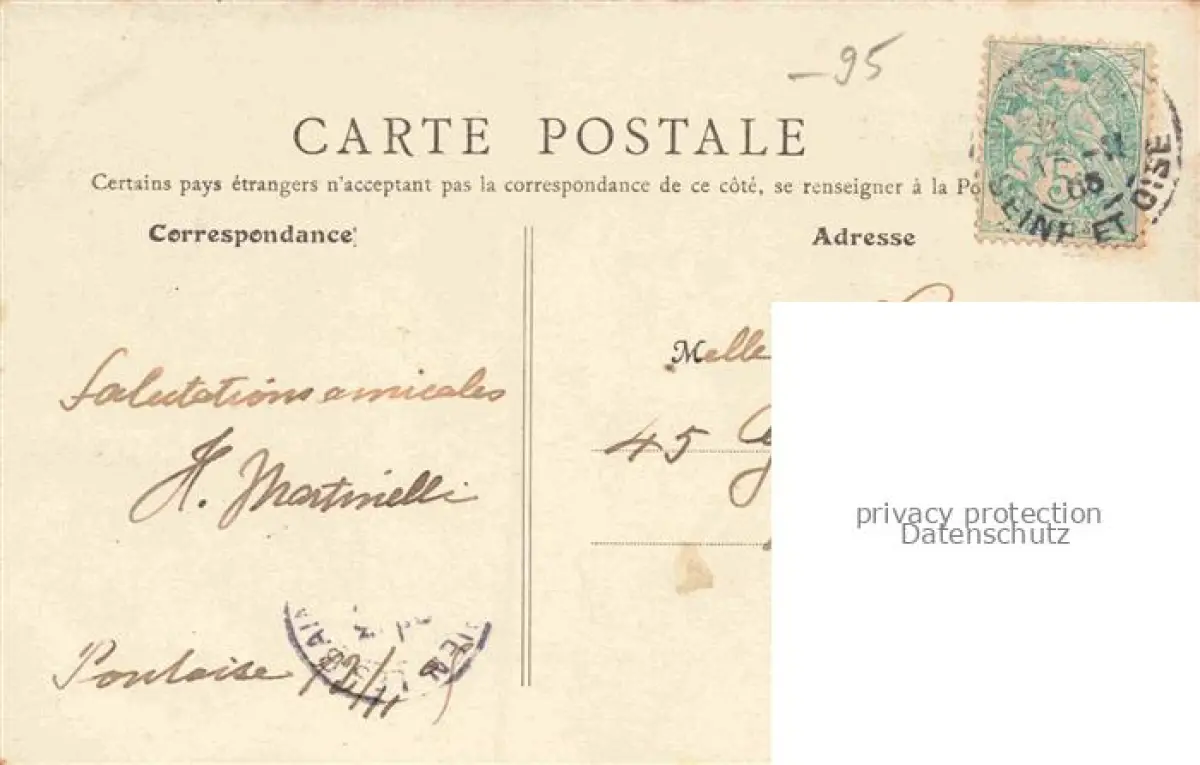 -95
CARTE POSTALE
Certains pays étrangers n'acceptent pas la correspondance de ce côté, se renseigner à la Po
Correspondance
Adresse
5
05
SEINE ET OISE
Melle
Salutations amicales
45
H. Martinelli
privacy protection
Datenschutz
Pontoise